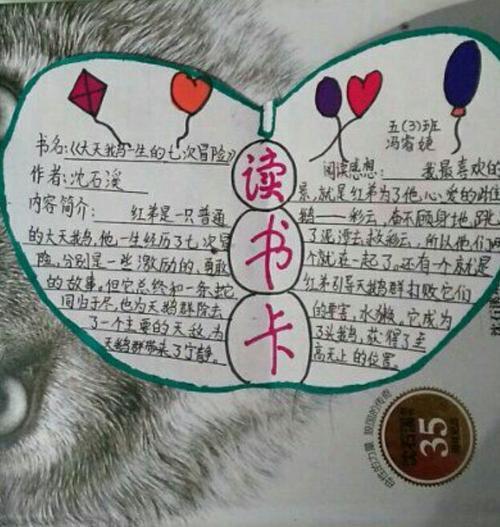 书名:《大天鹅一生的七次冒险》
作者:沈石溪
内容简介: 红弟是一只普通
的大天鹅,他,一生经历了七次冒
险,分别是一些激励的,勇敢
的故事,但它总终和一条蛇
同归于尽,也为天鹅群除去
了一个主要的天敌,为
天鹅群带来了宁静。
读
书
卡
五(3)班
冯睿婕
阅读感想: 我最喜欢的
景,就是红弟为了他,心爱的
鹅——彩云,奋不顾身地,跳
了泥潭去救彩云,所以他们两
个就在一起了。还有一个就是
红弟引导天鹅群打败它们
的要害,水獭,它成为
了头鹅,获得了至
高无上的位置。
母性的力量 狼国的传奇
沈石溪
35